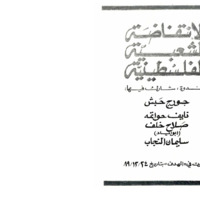 الانتفاضة
الشعبية
الفلسطينية
ندوة شارك فيها:
جورج حبش
نايف حواتمه
صلاح خلف
(ابو اياد)
سليمان النجاب